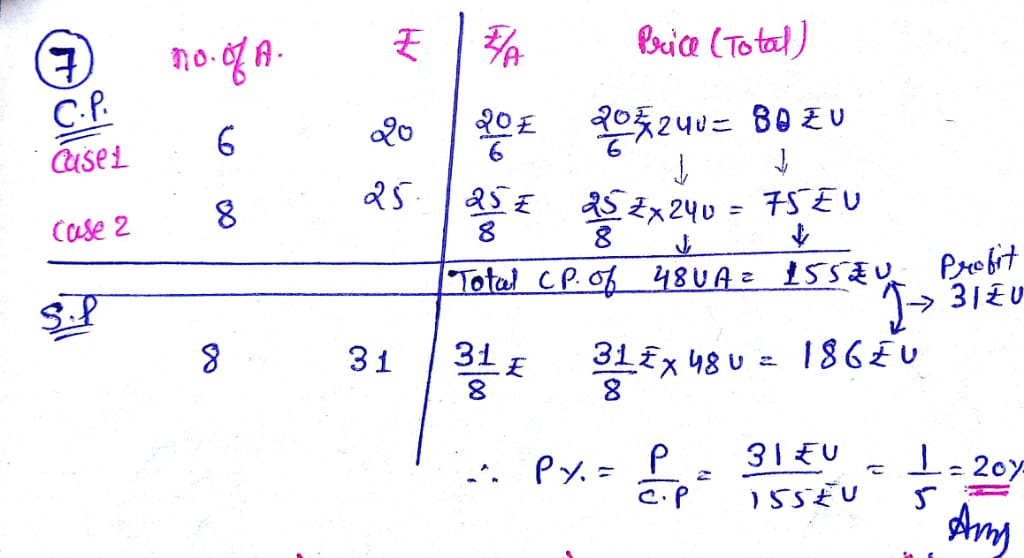 ⑦ no. of A. ₹ ₹/A Price (Total)
C.P.
Case 1 6 20 20/6 ₹ 20/6 ₹ x 24U = 80 ₹U
↓ ↓
Case 2 8 25. 25/8 ₹ 25/8 ₹ x 24U = 75 ₹U
↓ ↓
Total C.P. of 48UA = 155 ₹U → Profit 31 ₹U
S.P
8 31 31/8 ₹ 31/8 ₹ x 48U = 186 ₹U
∴ P%. = P/C.P = 31 ₹U/155 ₹U = 1/5 = 20%
Ans